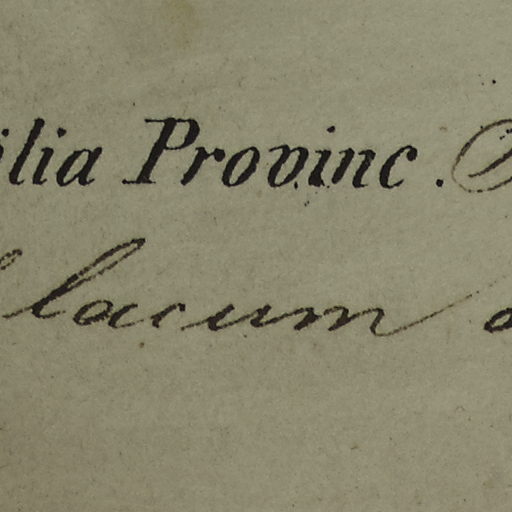 ilia Provinc.
lacum